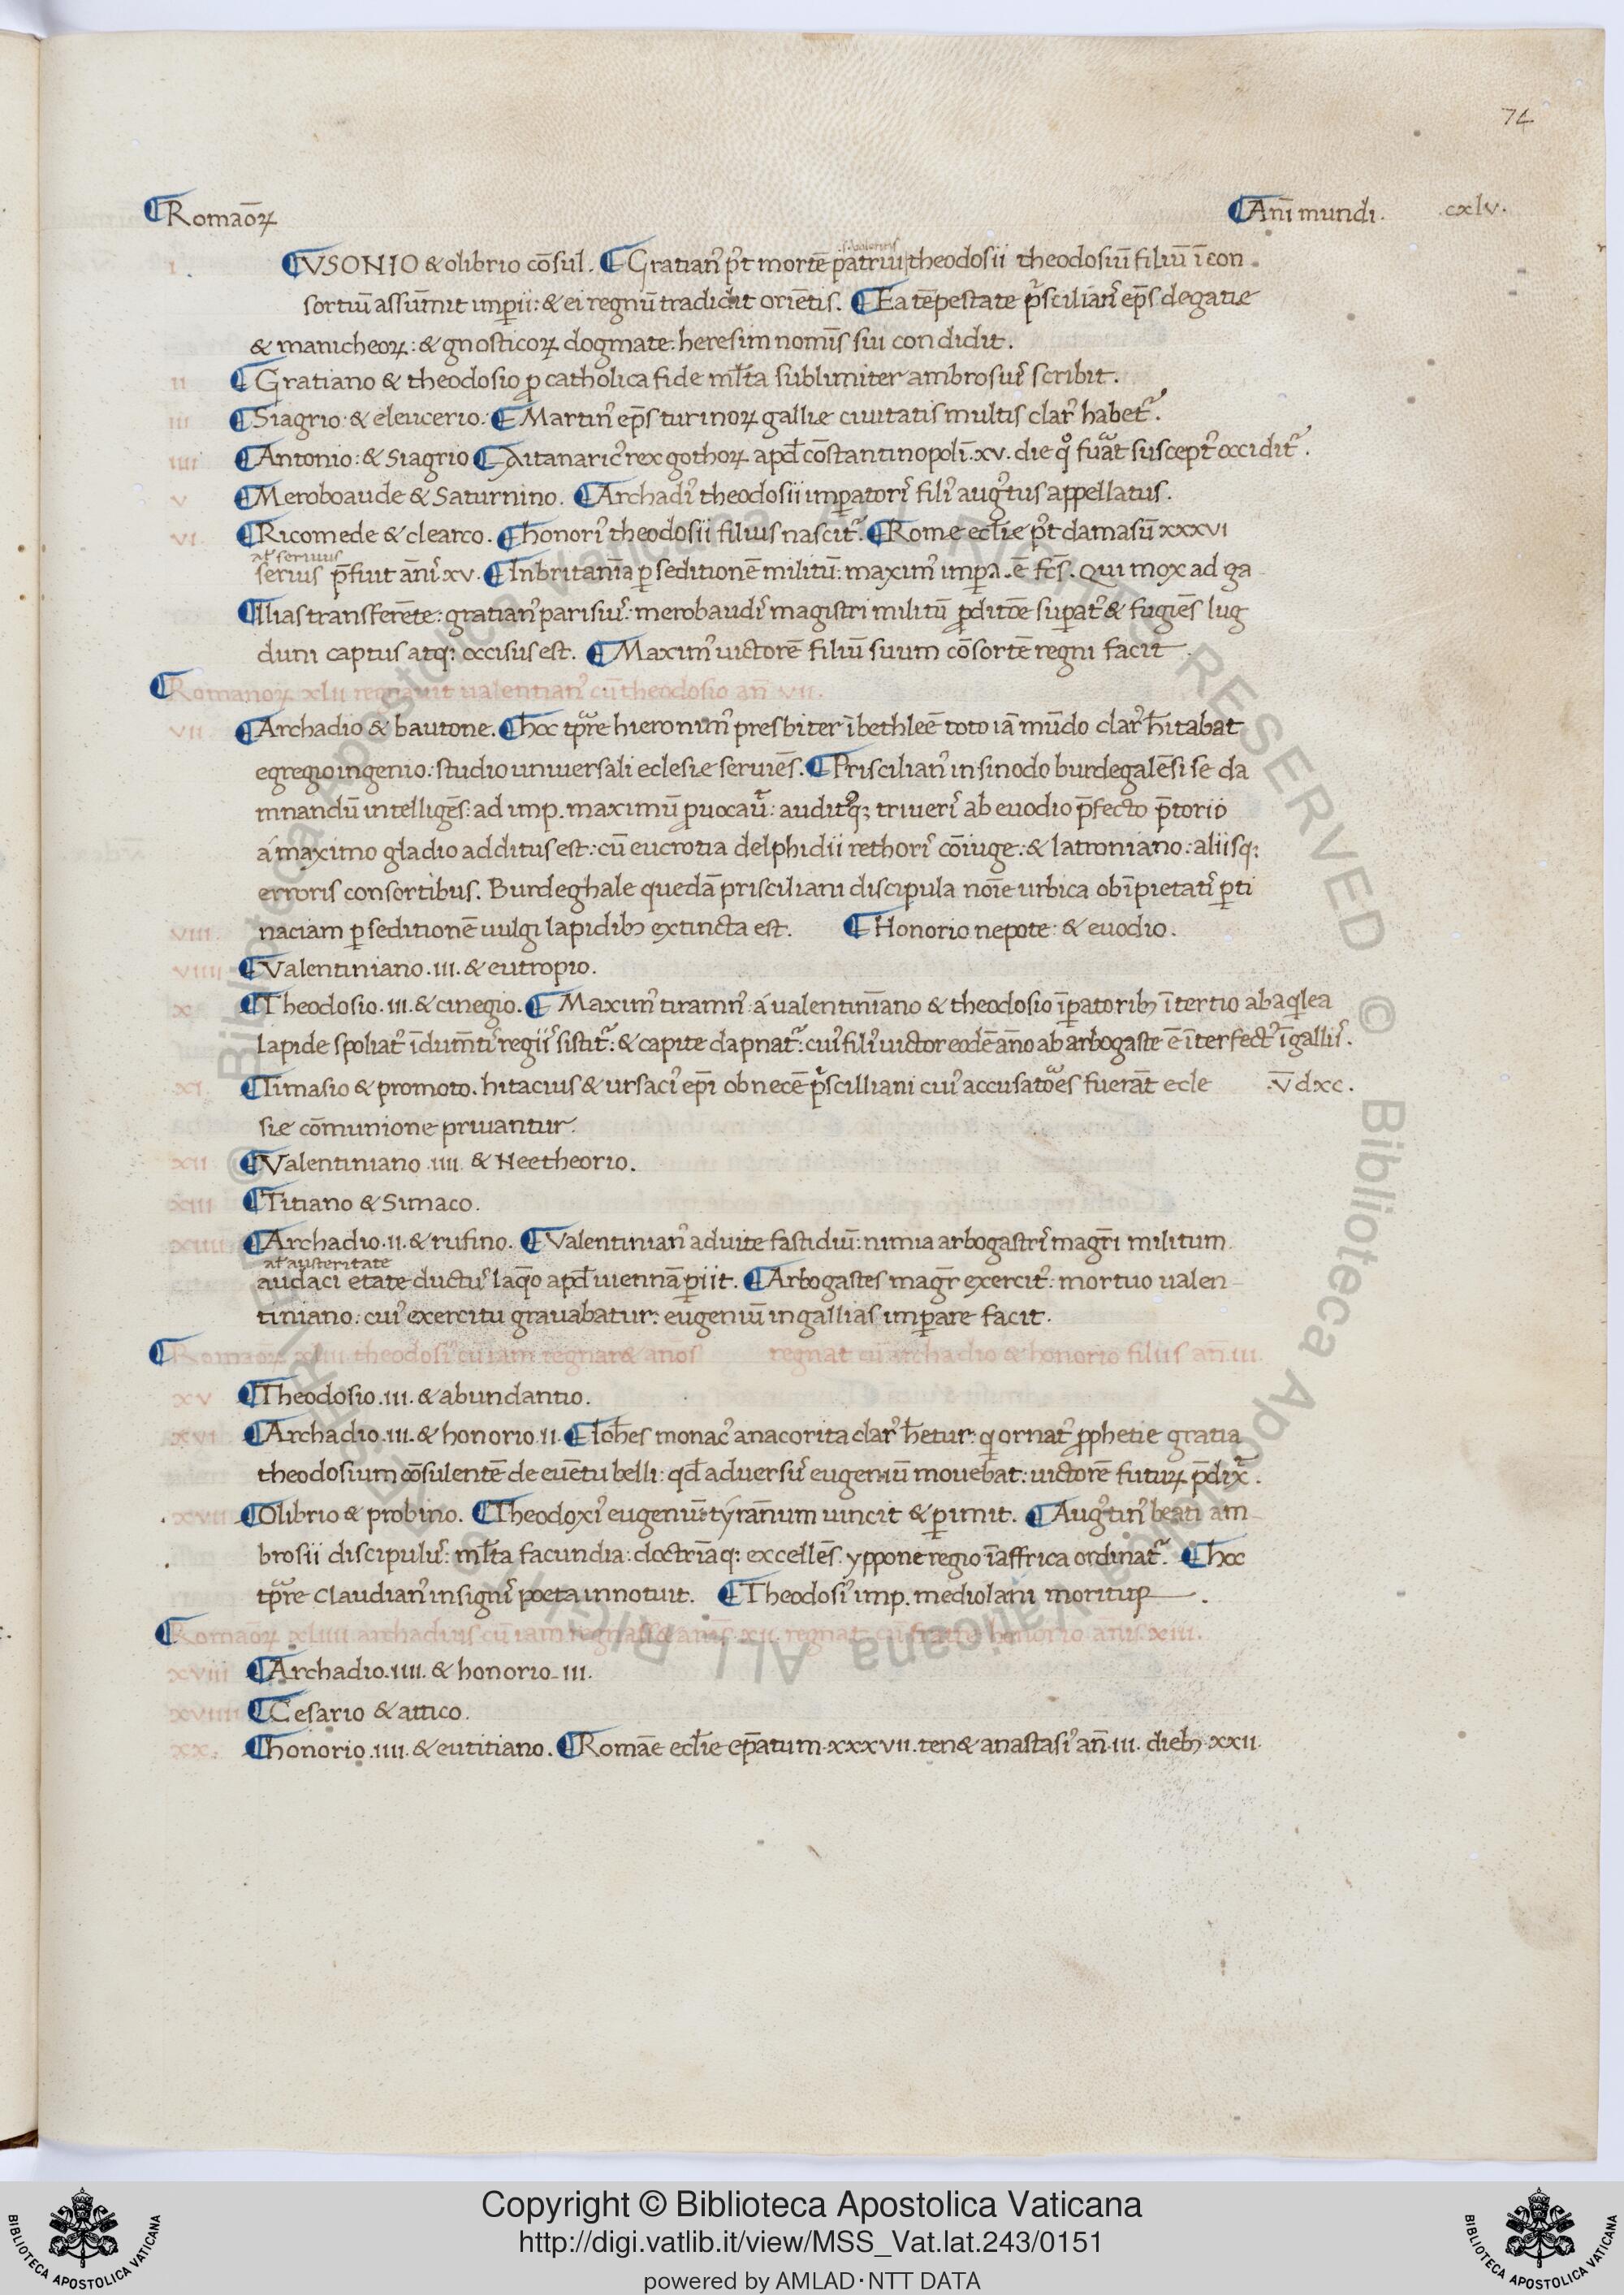 74
Romaōꝝ Anī mundi. .cxlv.
I VSONIO & olibrio cōsul. Gratianꝰ pꝰt mortē patrui theodosii theodosiū filiū ī con
sortiū assūmit imꝑii: & ei regnū tradidit oriētis. Ea tēpestate pͥscilianꝰ ep̄s de gatie
& manicheoꝝ: & gnosticoꝝ dogmate: heresim nomīs sui condidit.
II Gratiano & theodosio ꝓ catholica fide ml̄ta sublimiter ambrosiꝰ scribit.
III Siagrio & eleucerio. Martinꝰ ep̄s turinoꝝ gallie ciuitatis multis clarꝰ habetᷣ.
IIII Antonio: & Siagrio Aitanaricꝰ rex gothoꝝ apd̄ cōstantinopolī .xv. die qͦ fuᷓat susceptꝰ occiditᷣ.
V Meroboaude & Saturnino. Archadiꝰ theodosii imꝑatorꝭ filiꝰ augꝰtus appellatus.
VI Ricomede & clearco. honoriꝰ theodosii filius nascitᷣ. Rome eccl̄ie pꝰt damasū xxxvi
al' seruius
serius p̄fuit ānꝭ xv. In britanīa ꝑ seditionē militū: maximꝰ imꝑa. ē fc̄s. Qui mox ad ga
llias transferēte: gratianꝰ parisiꝰ: merobaudꝭ magistri militū ꝓditōe suꝑatꝰ & fugiēs lug
duni captus atq: occisus est. Maximꝰ uictorē filiū suum cōsortē regni facit
Romanoꝝ xlii regnauit ualentianꝰ cū theodosio an̄ vii.
VII Archadio & bautone. hoc tꝑᷓe hieronimꝰ presbiter ī bethleē toto iā mūdo clarꝰ h̄itabat
egregio ingenio: studio uniuersali eclesie seruiēs. Priscilianꝰ in sinodo burdegalēsi se da
mnandū intelligēs: ad imp. maximū ꝓuocaūᷓ: auditꝰq; triuerꝭ ab euodio p̄fecto p̄torio
á maximo gladio additus est: cū eucrotia delphidii rethorꝭ cōiuge: & latroniano: aliisq:
erroris consortibus. Burdeghale quedā prisciliani discipula noīe urbica ob īpietatꝭ ꝑti
VIII naciam ꝑ seditionē uulgi lapidibꝫ extincta est. Honorio nepote: & euodio.
VIIII Valentiniano .III. & eutropio.
X Theodosio .III. & cinegio. Maximꝰ tirannꝰ á ualentinīano & theodosio īꝑatoribꝫ ī tertio ab aqͥlea
lapide spoliatꝰ īdumtꝭ regiꝭ sistitᷣ: & capite dapnatᷣ: cuiꝰ filiꝰ uictor eodē āno ab arbogaste ē īterfectꝰ ī gallꝭ.
XI Timasio & promoto. hitacius & ursaciꝰ ep̄i ob necē pͥscilliani cuiꝰ accusatōes fuerāt ecle .V̄ dxc.
sie cōmunione priuantur.
XII Valentiniano .IIII. & Neetheorio.
XIII Titiano & Simaco.
XIIII Archadio .II. & rufino. Valentinianꝰ ad uite fastidiū: nimia arbogastrꝭ magr̄i militum
al' austeritate
audaci etate ductuꝰ laq̄o apd̄ uiennā ꝑiit. Arbogastes magr̄ exercitꝰ: mortuo ualen-
tiniano: cuiꝰ exercitu grauabatur: eugeniū in gallias imꝑare facit.
Romaoꝝ xliii theodosiꝰ cū iam regnar& anos regnat cū archadio & honorio filiis an .III.
XV Theodosio .III. & abundantio.
XVI Archadio .III. & honorio II. Ioh̄es monacꝰ anacorita clarꝰ h̄etur: qͥ ornatꝰ ꝓphetie gratia
theodosium cōsulentē de euētu belli: qd̄ aduersuꝰ eugeniū mouebat: uictorē futuꝝ p̄dix̄.
XVII Olibrio & probino. Theodoxiꝰ eugeniū tyrānum uincit & ꝑimit. Augꝰtinꝰ beati am-
brosii discipuluꝰ: ml̄ta facundia: doctrīaq: excellēs. yppone regio ī affrica ordinatᷣ. hoc
tꝑᷓe Claudianꝰ insignꝭ poeta innotuit. Theodosiꝰ imp. mediolani moritur
Romaoꝝ xliiii archadius cū iam regnass& anīs .xii. regnat cū fratre honorio anīs .xiii.
XVIII Archadio .IIII. & honorio III.
XVIIII Cesario & attico.
XX honorio .IIII. & eutitiano. Romāe eccl̄ie ep̄atum .xxxvii. ten& anastasiꝰ an̄ .III. diebꝫ .xxii.
Copyright © Biblioteca Apostolica Vaticana
http://digi.vatlib.it/view/MSS_Vat.lat.243/0151
powered by AMLAD·NTT DATA